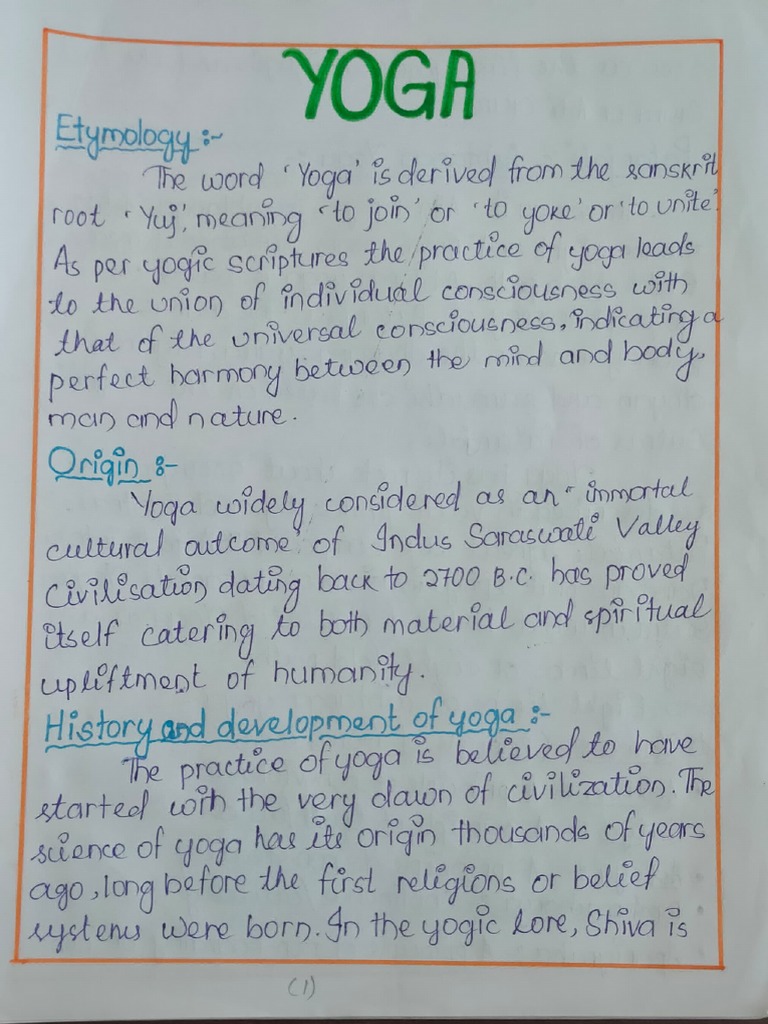 YOGA
Etymology :-
The word 'Yoga' is derived from the sanskrit
root 'Yuj', meaning 'to join' or 'to yoke' or 'to unite'.
As per yogic scriptures the practice of yoga leads
to the union of individual consciousness with
that of the universal consciousness, indicating a
perfect harmony between the mind and body,
man and nature.
Origin :-
Yoga widely considered as an "immortal
cultural outcome" of Indus Saraswati Valley
Civilisation dating back to 2700 B.C. has proved
itself catering to both material and spiritual
upliftment of humanity.
History and development of yoga :-
The practice of yoga is believed to have
started with the very dawn of civilization. The
science of yoga has its origin thousands of years
ago, long before the first religions or belief
systems were born. In the yogic lore, Shiva is
(1)